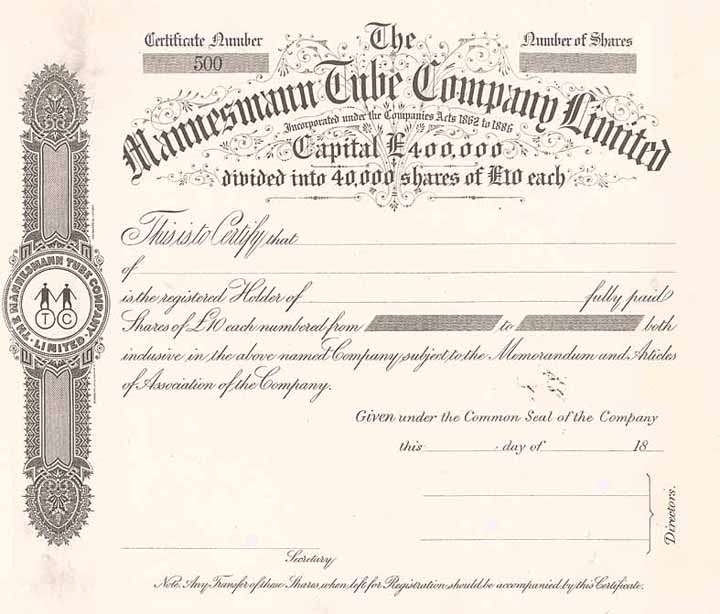 Certificate Number
500
The
Number of Shares
Mannesmann Tube Company Limited
Incorporated under the Companies Acts 1862 to 1886
Capital £400,000
divided into 40,000 shares of £10 each
This is to Certify that
of
is the registered Holder of fully paid
Shares of £10 each numbered from to both
inclusive in the above named Company, subject to the Memorandum and Articles
of Association of the Company.
Given under the Common Seal of the Company
this day of 18
Directors.
Secretary
Note. Any Transfer of these Shares, when left for Registration should be accompanied by this Certificate.
THE MANNESMANN TUBE COMPANY
LIMITED
T C